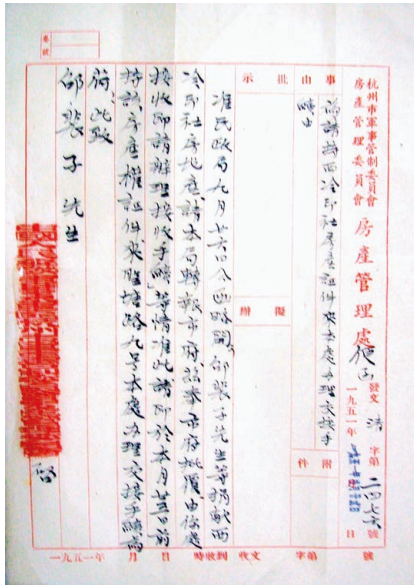 杭州市軍事管制委員會
房產管理委員會
房產管理處 便函
發文 清 字第二四七六號
一九五一年 日
事由
為請持西冷印社房產証件來本處办理交接手
續由
附件
批示
擬辦
准民政局九月廿六日公函略開邵裴子先生等捐献西
冷印社房地產請本局轉報市府茲奉市府批覆由你處
接收即請辦理接收手續等情准此請即於本月廿五日前
持該房產權証件來 路九号本處办理交接手續為
荷此致
邵裴子先生
啓
卷號
一九五一年 月 日 時收到 收文 字第 號